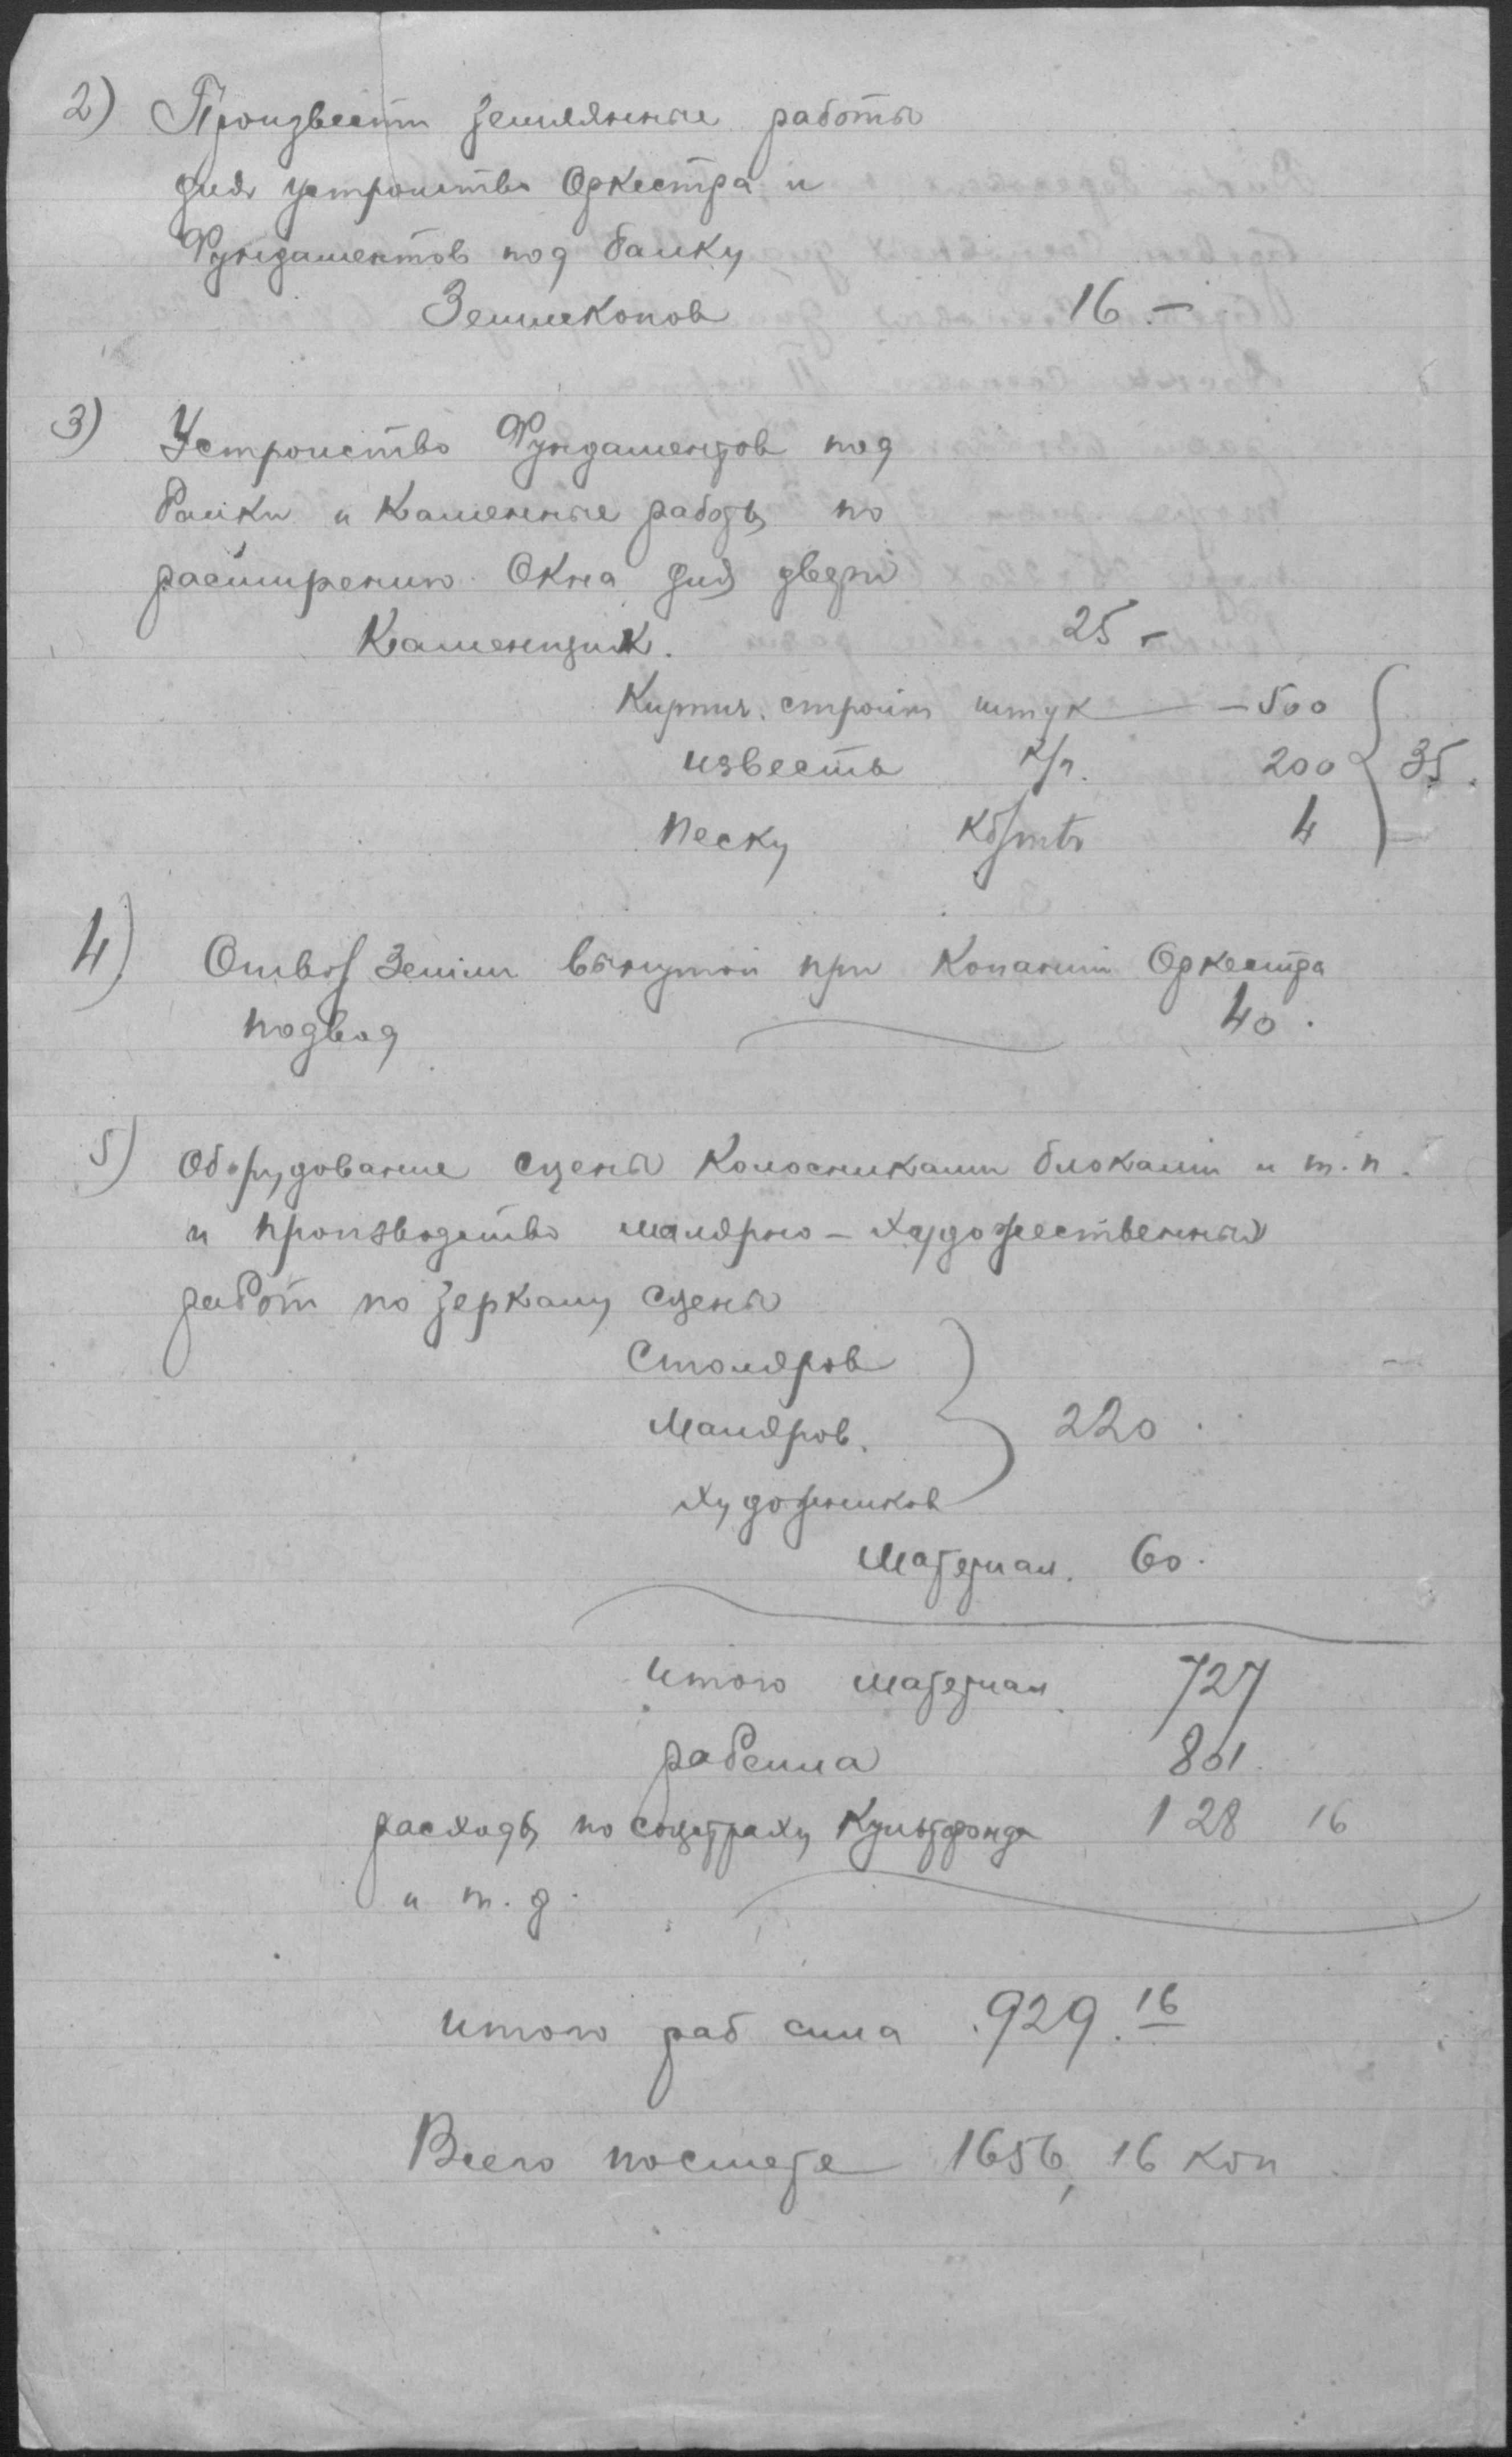 2) Произвести земляные работы
для устройства Оркестра и
Фундаментов под балку
Землекопов 16 –
3) Устройство Фундаментов под
балки и каменные работы по
расширению Окна для двери
Каменщик. 25 –
Кирпич. строит штук – 500
известь к/г. 200 35.
песку кб/mtr 4
4) Отвоз Земли вынутой при Копании Оркестра
подвод 40.
5) Оборудование сцены Колосниками блоками и т.п.
и производство малярно – художественных
работ по зеркалу сцены
Столяров
Маляров. 220.
Художников
Материал. 60.
итого материал 727
рабсила 801.
расходы по соцстраху Культфонда 128 16
и т. д.
итого раб сила 929.16
Всего по смете 1656, 16 коп